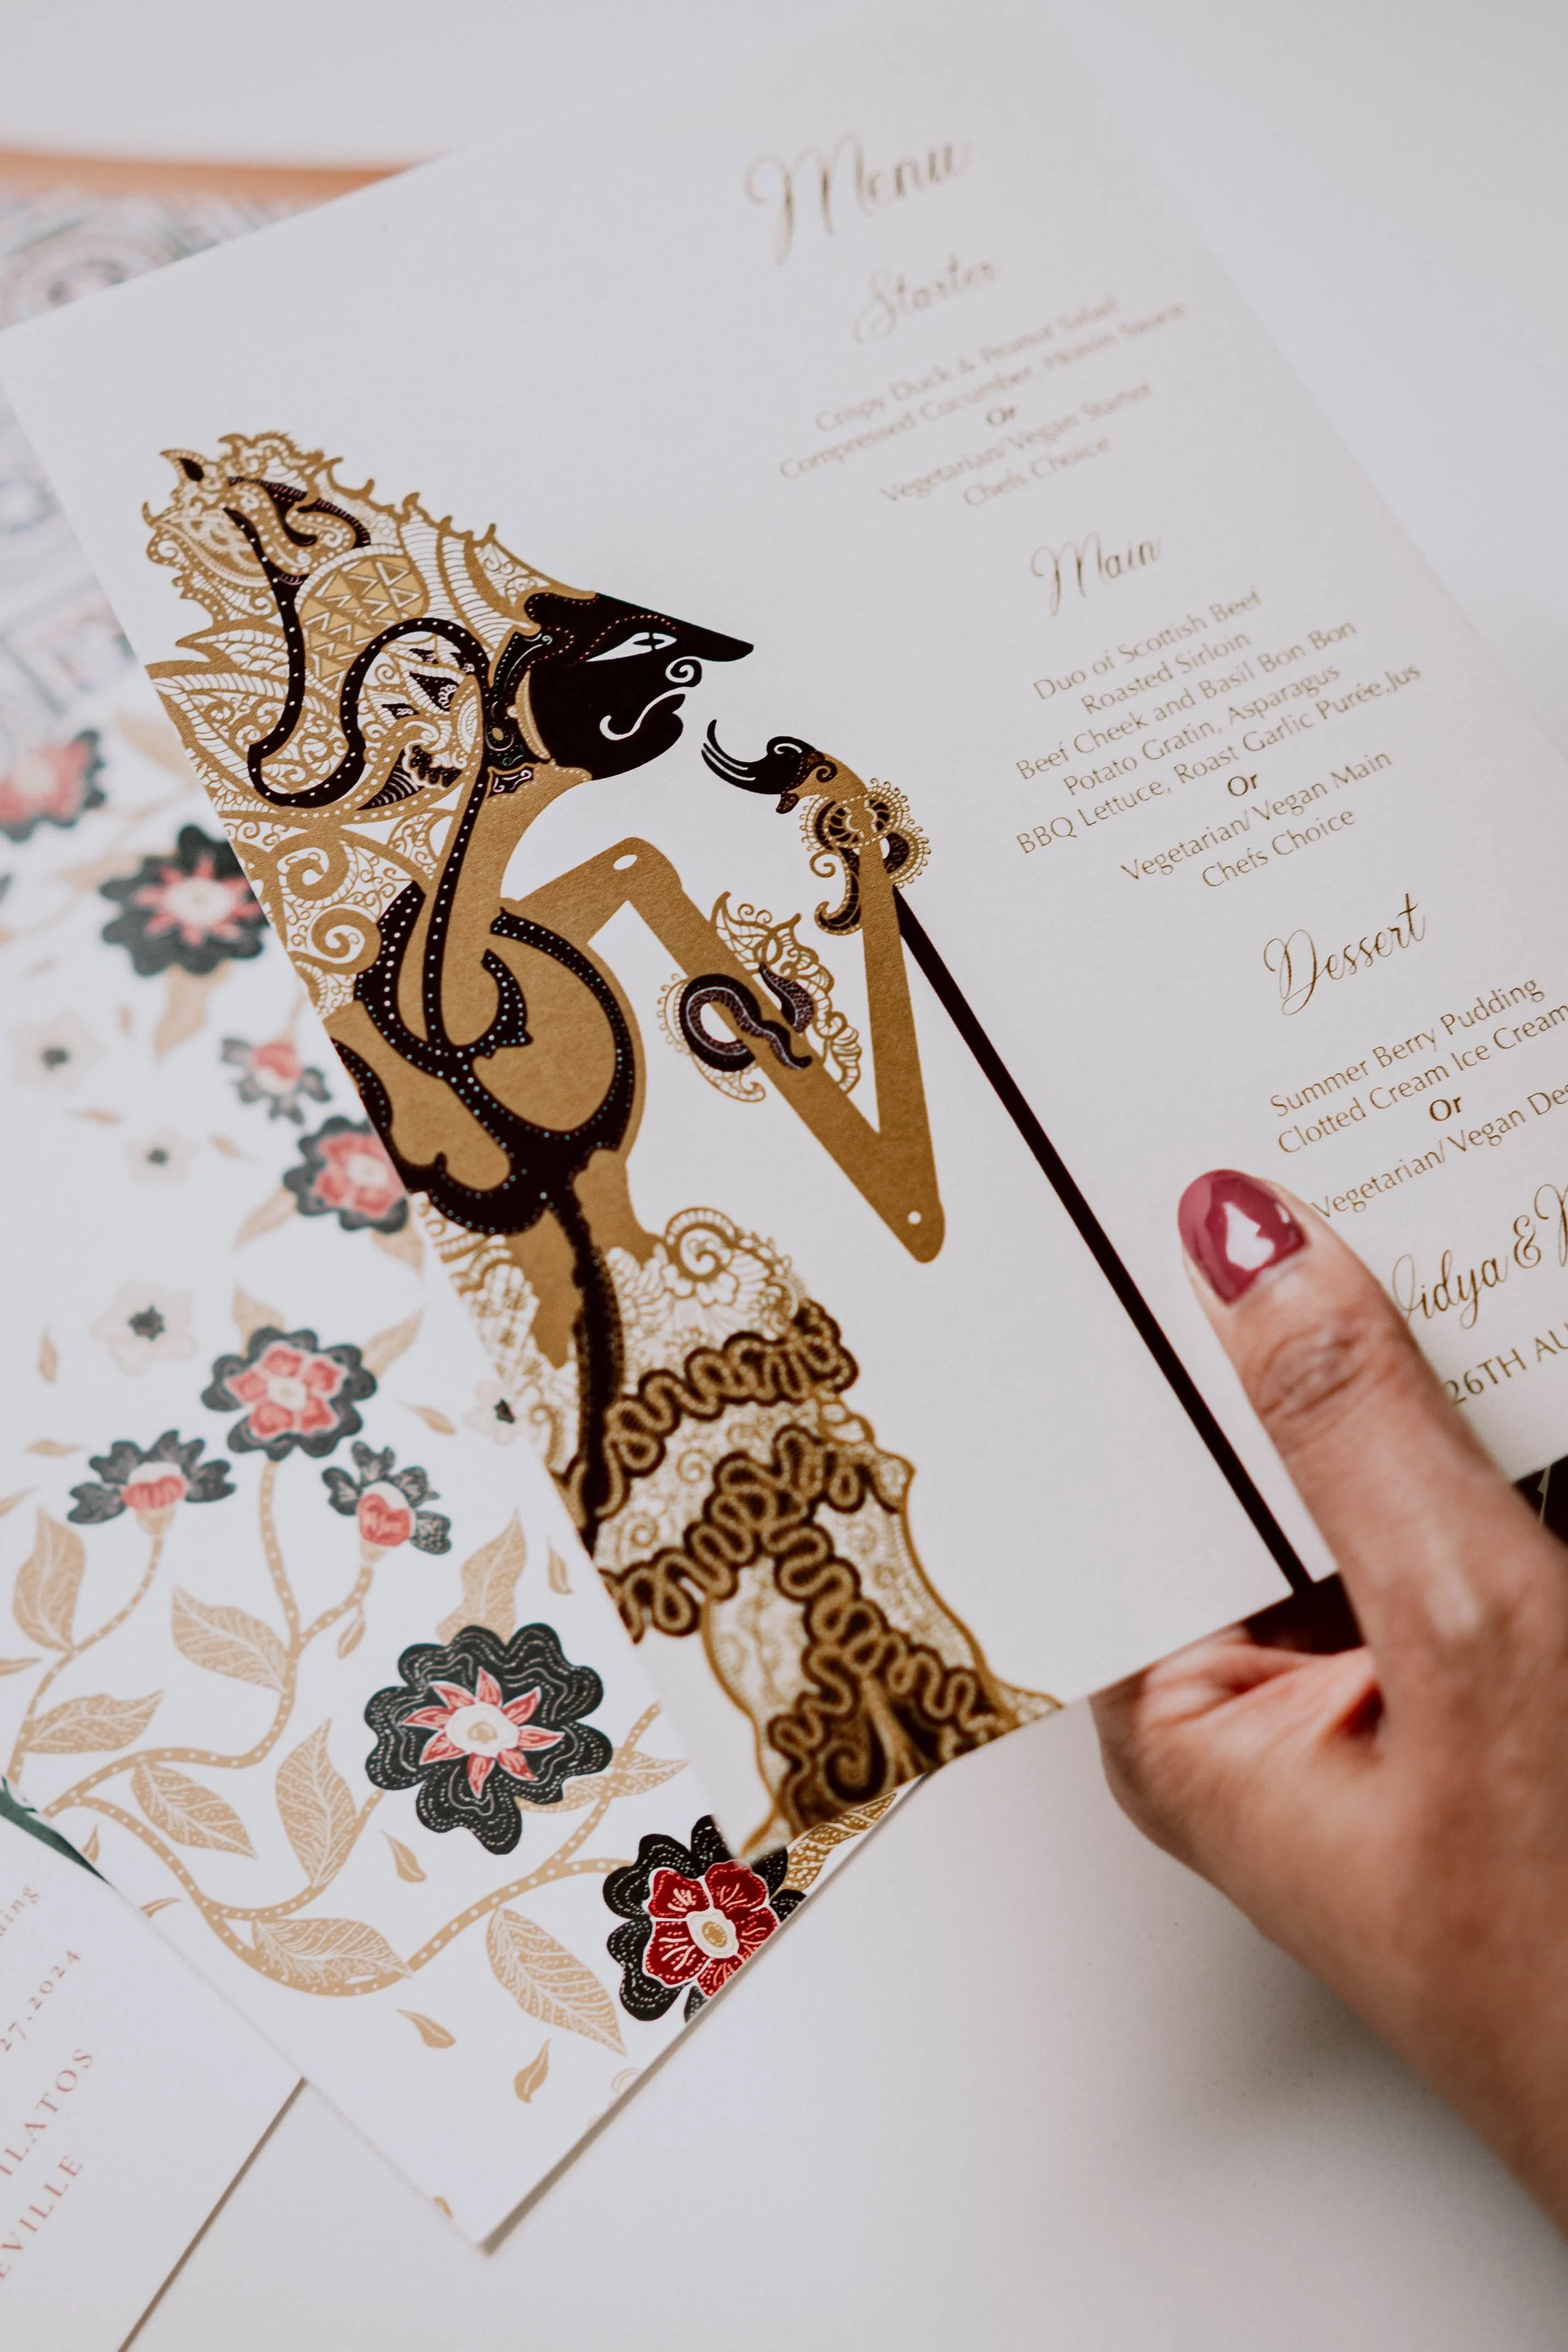 Menu
Starter
Crispy Duck & Peanut Salad
Compressed Cucumber, Hoisin Sauce
Or
Vegetarian/Vegan Starter
Chefs Choice
Main
Duo of Scottish Beef
Roasted Sirloin
Beef Cheek and Basil Bon Bon
Potato Gratin, Asparagus
BBQ Lettuce, Roast Garlic Purée,Jus
Or
Vegetarian/Vegan Main
Chefs Choice
Dessert
Summer Berry Pudding
Clotted Cream Ice Cream
Or
Vegetarian/Vegan Des
Vidya &
26TH AU
27.2024